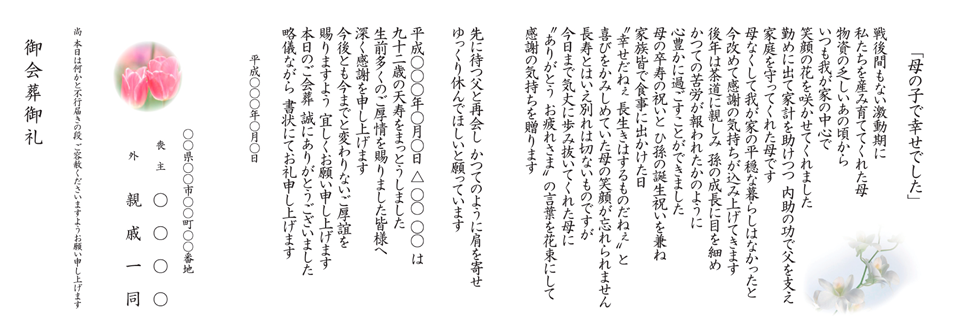 「母の子で幸せでした」
戦後間もない激動期に
私たちを産み育ててくれた母
物資の乏しいあの頃から
いつも我が家の中心で
笑顔の花を咲かせてくれました
勤めに出て家計を助けつつ 内助の功で父を支え
家庭を守ってくれた母です
母なくして我が家の平穏な暮らしはなかったと
今改めて感謝の気持ちが込み上げてきます
後年は茶道に親しみ 孫の成長に目を細め
かつての苦労が報われたかのように
心豊かに過ごすことができました
母の卒寿の祝いと ひ孫の誕生祝いを兼ね
家族皆で食事に出かけた日
〝幸せだねぇ 長生きはするものだねぇ〟と
喜びをかみしめていた母の笑顔が忘れられません
長寿とはいえ別れは切ないものですが
今日まで気丈に歩み抜いてくれた母に
〝ありがとう お疲れさま〟の言葉を花束にして
感謝の気持ちを贈ります
先に待つ父と再会し かつてのように肩を寄せ
ゆっくり休んでほしいと願っています
平成〇〇〇年〇月〇日 △〇〇〇〇は
九十二歳の天寿をまっとうしました
生前多くのご厚情を賜りました皆様へ
深く感謝を申し上げます
今後とも今までと変わりないご厚誼を
賜りますよう 宜しくお願い申し上げます
本日のご会葬 誠にありがとうございました
略儀ながら 書状にてお礼申し上げます
平成〇〇〇〇年〇月〇日
〇〇県〇〇市〇〇町〇〇番地
喪主 〇〇〇〇
外 親戚一同
尚 本日は何かと不行届きの段 ご容赦くださいますようお願い申し上げます
御会葬御礼